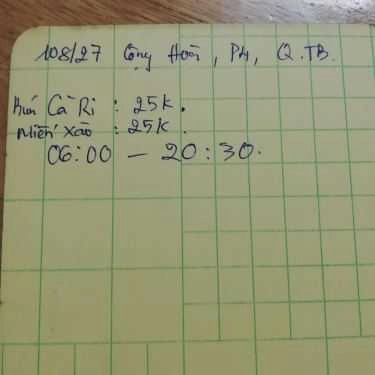 108/27 Cộng Hoà, P4, Q.TB.
Bún Cà Ri : 25k.
Miến xào : 25k.
06:00 – 20:30.